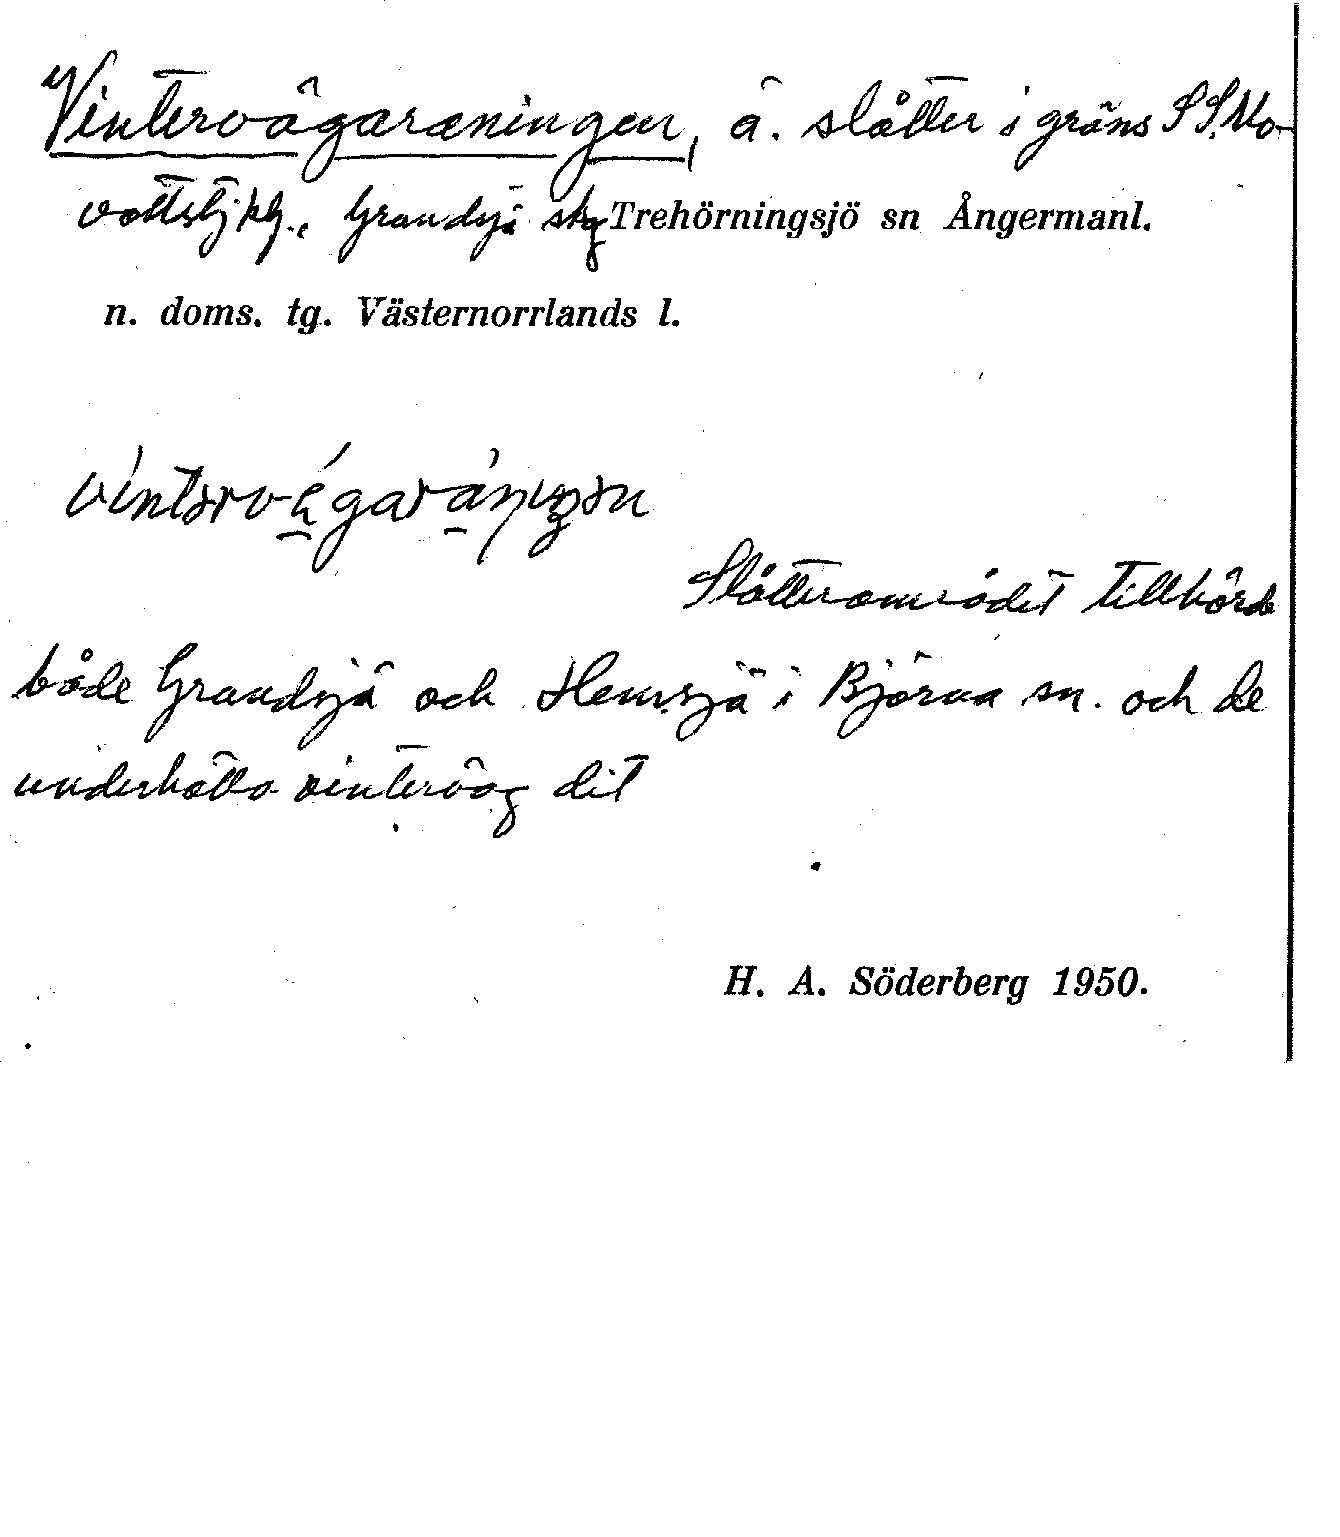 Vintervägaræningen, ä. slåtter i gräns S S. No-
vattsbj kg., Grundsjö skg Trehörningsjö sn Ångermanl.
n. doms. tg. Västernorrlands l.
Slåtterområdet tillhörde
både Grundsjö och Hemsjö i Björna sn. och de
underhöllo vinterväg dit
H. A. Söderberg 1950.